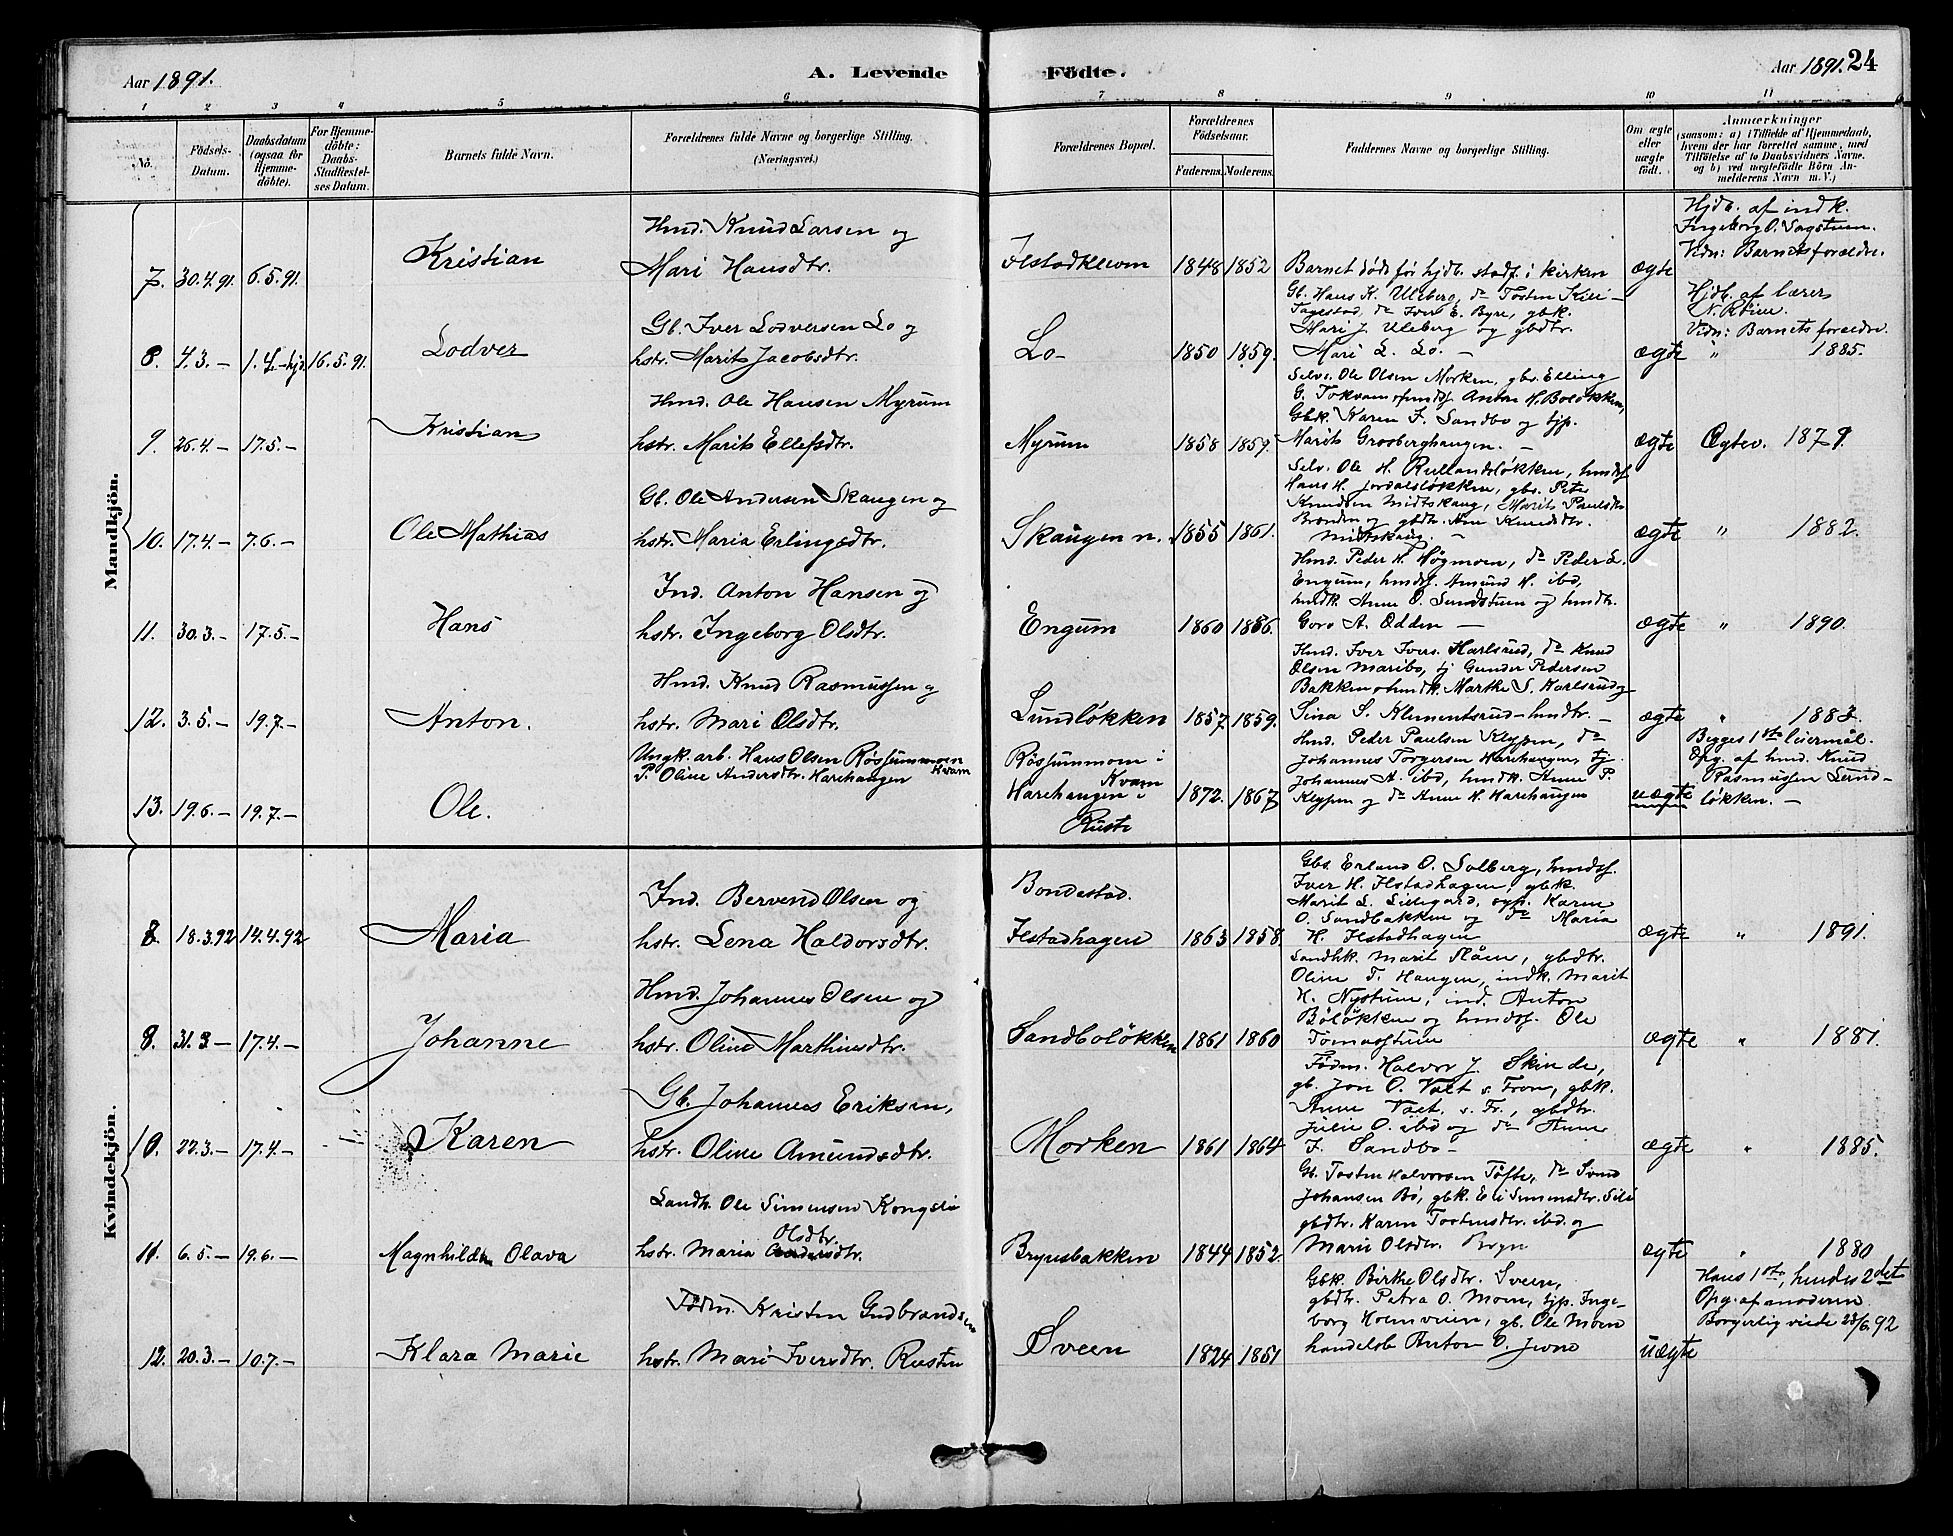 Aar 1891.
A. Levende Födte.
Aar 1891. 24
1 2 3 4 5 6 7 8 9 10 11
No.
Födsels-Datum.
Daabsdatum (ogsaa for Hjemme-döbte).
For Hjemme-döbte: Daabs-Stadfæstel-ses Datum.
Barnets fulde Navn.
Forældrenes fulde Navne og borgerlige Stilling. (Næringsvei.)
Forældrenes Bopæl.
Forældrenes Födselsaar.
Faderens. Moderens.
Faddernes Navne og borgerlige Stilling.
Om ægte eller uægte födt.
Anmærkninger
(saasom: a) i Tilfælde af Hjemmedaab,
hvem der har forrettet samme, med
Tilföielse af to Daabsvidners Navne,
og b) ved uægtefödte Börn An-
melderens Navn m. V.)
Mandkjön.
7. 30.4.91. 6.5.91. Kristian
Hmd. Knud Larsen og
Mari Hansdtr.
1848 1852
Barnet døde før hjdb. stadf. i kirken
ægte
Hjdb. af indk.
Ingeborg O. Sagstuen.
Vidn: Barnets forældre.
8. 4.3.– 1.4.–hjd 16.5.91. Lodver
Gb. Iver Lodversen Lo og
hstr. Marit Jacobsdtr.
Lo–
1850 1859.
Gb. Hans K. Uleberg, do Tosten
do Iver E. Byre, gbk.
Mari J. Uleberg og gbdtr.
Mari L. Lo. –
ægte
Hjdb. af lærer
N. Röine.
Vidn: Barnets forældre.
" 1885.
9. 26.4.– 17.5.– Kristian
Hmd. Ole Hansen Myrum
hstr. Marit Ellefsdtr.
Myrum
1858 1859.
Selv. Ole Olsen Morken, gbs. Elling
G. Tokvam
Gbk. Karen F. Sandbo og tjp.
Marit Grosberghaugen. –
ægte Ægtev. 1879.
10. 17.4.– 7.6.– Ole Mathias
Gb. Ole Andersen Skaugen og
hstr. Maria Erlingsdtr.
Skaugen n.
1855 1861.
Selv. Ole H. Rullandsløkken, hmdsf.
Hans H. Jordalsløkken, gbs. Peter
Knudsen Midtskaug, Marit Paulsdtr.
Brænden og gbdtr. Ane Knudsdtr.
Midtskaug. –
ægte " 1882.
11. 30.3.– 17.5.– Hans
Ind. Anton Hansen og
hstr. Ingeborg Olsdtr.
Engum
1860 1866.
Hmd. Peder H. Høgmoen, do Peder L.
Engum, hmdsf. Amund H. ibd,
hmdk. Anne O. Sundstuen og hmdtr.
Goro A. Odden –
ægte " 1890.
12. 3.5.– 19.7.– Anton.
Hmd. Knud Rasmussen og
hstr. Mari Olsdtr.
Lundløkken
1857. 1859.
Hmd. Iver Ivers. Karlsrud, do Knud
Olsen Maribo, tj Gunder Pedersen
Bakken o hmdk. Marthe S. Karlsrud og
Sina S. Klementsrud – hmdtr. –
ægte " 1883.
13. 19.6.– 19.7.– Ole.
Ungk. arb. Hans Olsen Røssummoen Kvam
P. Oline Andersdtr. Harehaugen
Røssummoen i Kvam
Harehaugen i
Ruste
1872. 1867
Hmd. Peder Paulsen Klypen, do
Johannes Torgersen Harehaugen, tj.
Johannes A. ibd, hmdk. Anne P.
Klypen og do Anne H. Harehaugen
uægte
Begges 1ste leiermål.
Opg. af hmd. Knud
Rasmussen Lund-
løkken. –
Kvindekjön.
8. 18.3.92 14.4.92 Maria
Ind. Bervend Olsen og
hstr. Lena Haldorsdtr.
Bondestad.
Ilstadhagen
1863 1858.
Gbs. Erland O. Solberg, hmdsf.
Iver H. Ilstadhagen, gbk.
Marit L. Karen
O. Sandbakken og do Maria
H. Ilstadhagen
ægte " 1891.
8. 31.3– 17.4.– Johanne
Hmd. Johannes Olsen og
hstr. Oline Marthinsdtr.
Sandboløkken
1861 1860
Marit Flåen, gbdtr.
Oline T. Haugen, indk. Marit
H. Nystuen, ind. Anton
Bøløkken og hmdsf. Ole
ægte " 1881.
10. 22.3.– 17.4.– Karen
Gb. Johannes Eriksen,
hstr. Oline Amundsdtr.
Morken
1861 1864
Fødm. Halvor J. Skinde,
gb. Jon O. Valt s. Fron, gbk.
Anne Valt. s. Fr., gbdtr.
Julie O. ibd og do Anne
F. Sandbo–
ægte " 1885.
11. 6.5.– 19.6.– Magnhild Olava
Landh. Ole Simensen Kongsli
Olsdtr.
hstr. Maria Andersdtr.
Brynsbakken
1844 1852.
Gb. Tosten Halvorsen Tofte, do Svend
Johansen Bø, gbk. Eli Simensdtr.
gbdtr. Karen Tostensdtr. ibd. og
Marie Olsdtr. Bryn
ægte " 1880
12. 20.3.– 10.7.– Klara Marie
Fødm. Kristen Gudbrandsen
hstr. Mari Iversdtr. Rusten
Sveen
1824 1851
Gbk. Birthe Olsdtr. Sveen,
gbdtr. Petra O. Moen, tjp. Inge-
borg Holmveien, gb. Ole Moen
handelsb. Anton O. Jevne
uægte
Hans 1ste, hendes 2det
Opg. af moderen
Borgerlig viede 23/6.92